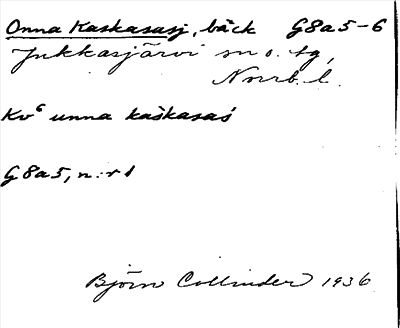 Onna Kaskasasj, bäck G8a5-6
Jukkasjärvi sn o. tg,
Norrb. l.
Kv⁶ unna kaškasaš
G8a5, n:r 1
Björn Collinder 1936